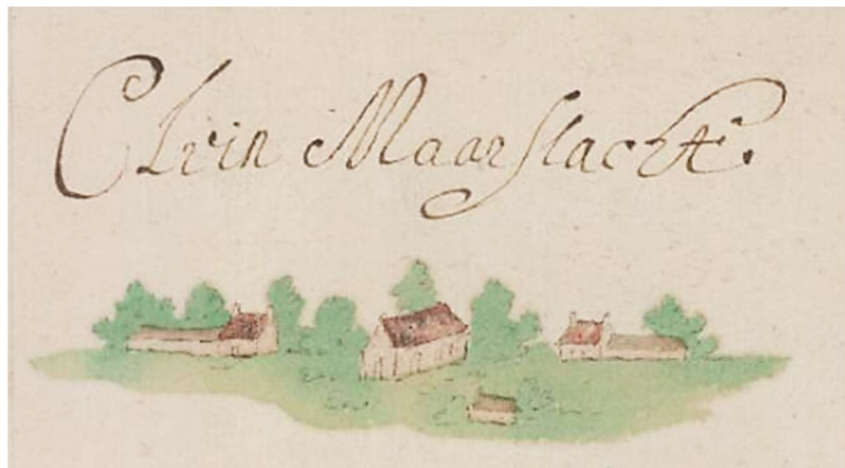 Clein Maarslacht.